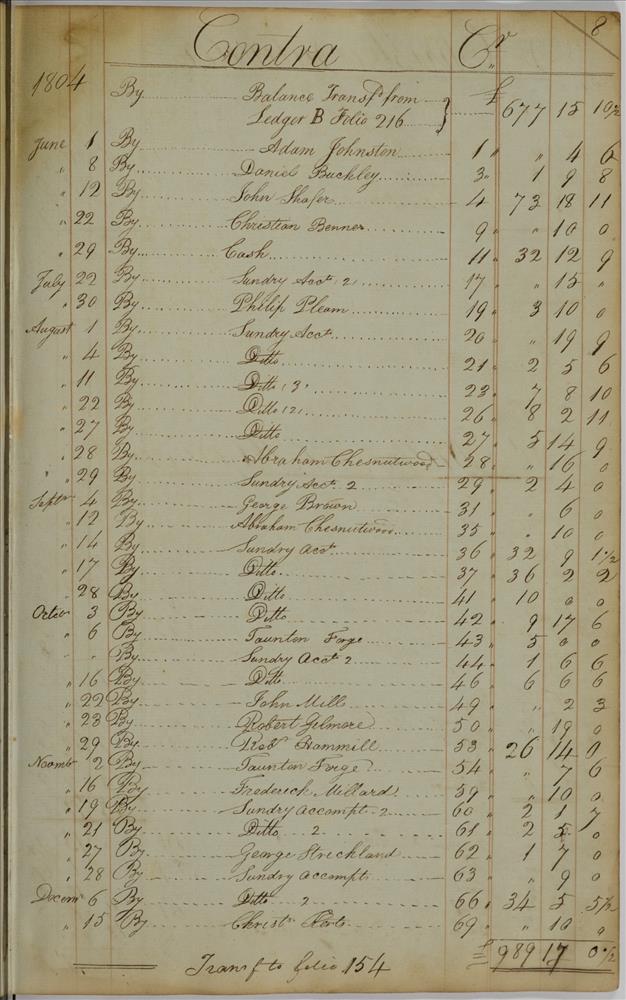 8
Contra Cr
1804 By Balance Transfd from
Ledger B Folio 216 £ 677 15 10½
June 1 By Adam Johnston 1 " " 4 6
" 8 By Daniel Buckley 3 " 1 9 8
" 12 By John Shafer 4 73 18 11
" 22 By Christian Benner 9 " " 10 0
" 29 By Cash 11 " 32 12 9
July 22 By Sundry Acct 2 17 " " 15 "
" 30 By Philip Pleam 19 " 3 10 0
August 1 By Sundry Acct 20 " " 19 9
" 4 By Ditto 21 " 2 5 6
" 11 By Ditto (3) 23 " 7 8 10
" 22 By Ditto (2) 26 " 8 2 11
" 27 By Ditto 27 " 5 14 9
" 28 By Abraham Chesnutwood 28 " " 16 0
" 29 By Sundry Acct 2 29 " 2 4 0
Septr 4 By George Brown 31 " " 6 0
" 12 By Abraham Chesnutwood 35 " " 10 0
" 14 By Sundry Acct 36 " 32 9 1½
" 17 By Ditto 37 " 36 2 2
" 28 By Ditto 41 " 10 0 0
Octor 3 By Ditto 42 " 9 17 6
" 6 By Taunton Forge 43 " 5 0 0
" " By Sundry Acct 2 44 " 1 6 6
" 16 By Ditto 46 " 6 6 6
" 22 By John Mill 49 " " 2 3
" 23 By Robert Gilmore 50 " " 19 0
" 29 By Robt 53 " 26 14 0
Novembr 2 By Taunton Forge 54 " " 7 6
" 16 By Frederick Millard 59 " " 10 0
" 19 By Sundry Accompt 2 60 " 2 1 7
" 21 By Ditto 2 61 " 2 5 0
" 27 By George Strickland 62 " 1 7 0
" 28 By Sundry Accompt 63 " " 9 0
Decem 6 By Ditto 2 66 " 34 5 5½
" 15 By Christn 69 " " 10 0
£ 989 17 0½
Transf to folio 154